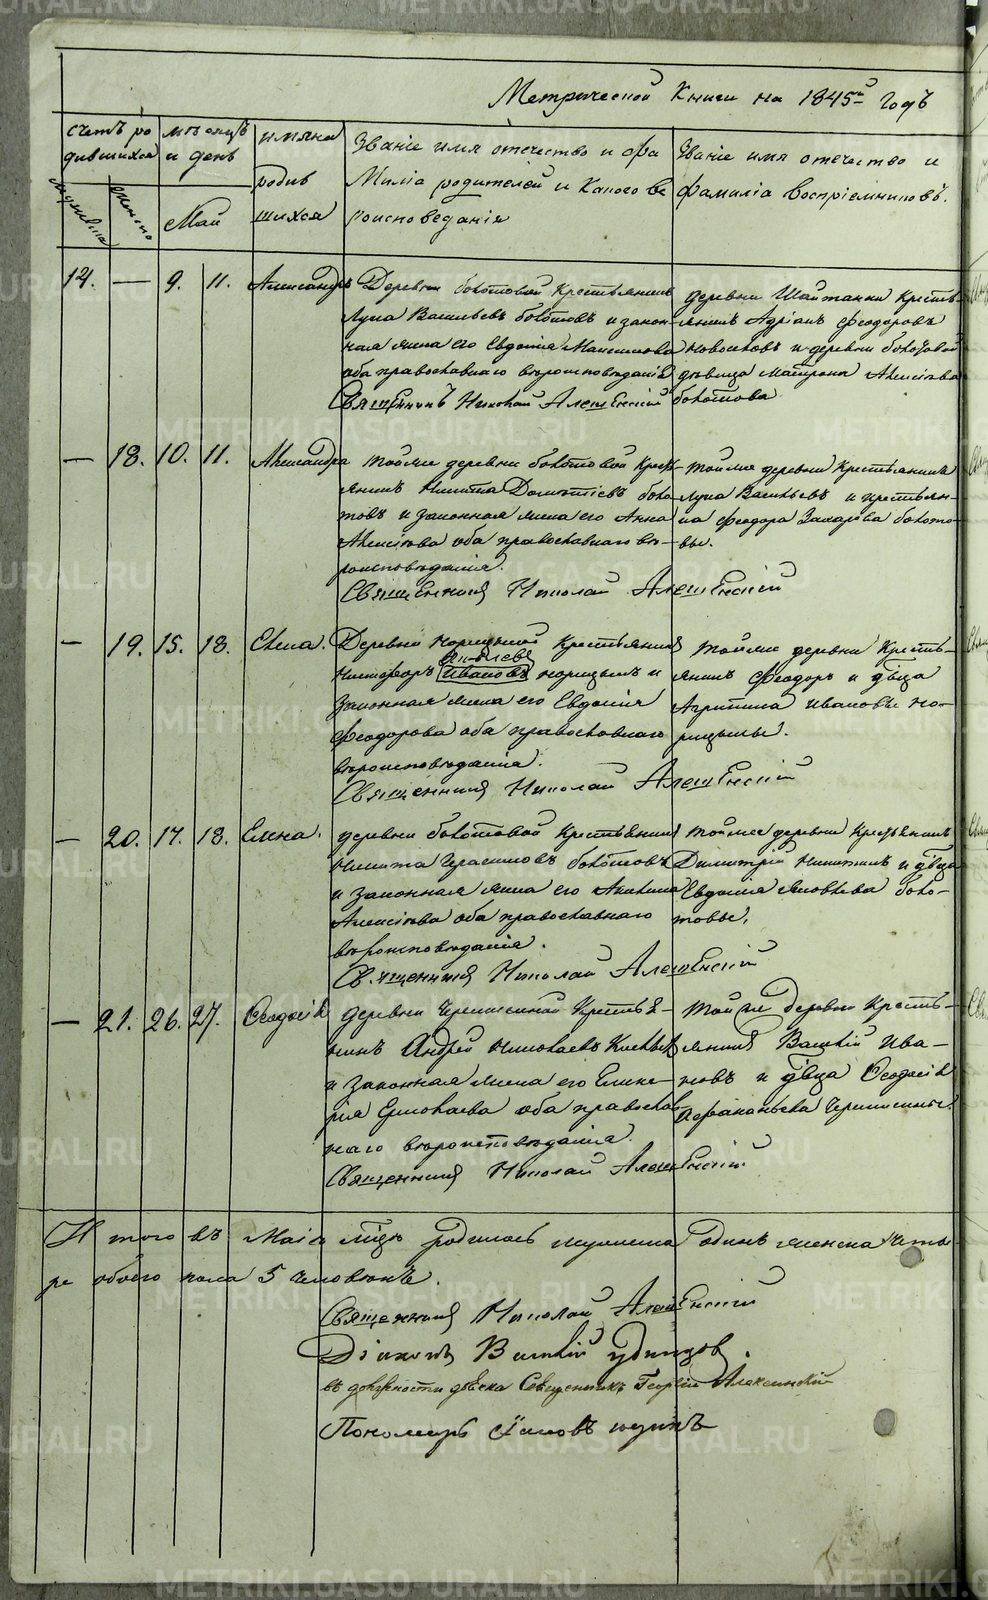 Метрической Книги на 1845й Годъ
счетъ ро
дившихся
мѣсяцъ
и день
имяна
родив
шихся
Званіе имя отечество и фа
миліа родителей и какого ве
роисповеданія
Званіе имя отечество и
фамиліа воспріемниковъ.
мужеска
женско
Май
14. — 9. 11. Александръ
Деревни болотовой крестьянинъ
Лука Васильевъ болотовъ и закон-
ная жена его Евдокія Максимова
оба православнаго вѣроисповѣданія
Священникъ Николай Алешенскій
деревни Шайтанки кресть-
янинъ Адріанъ Феодоровъ
новоселовъ и деревни болотовой
дѣвица Матрона Алексіева
болотова
— 18. 10. 11. Александра
тойже деревни болотовой крест-
янинъ Никита Домотіевъ боло
товъ и законная жена его Анна
Алексіева оба православнаго вѣ-
роисповѣданія.
Священникъ Николай Алешенскій
тойже деревни крестьянина
Лука Васильевъ и крестьян-
на Феодора Захарова болото-
вы.
— 19. 15. 18. Елена.
Деревни норицыной крестьянинъ
Никифоръ Ивановъ норицынъ и
законная жена его Евдокія
Феодорова оба православнаго
вѣроисповѣданія.
Священникъ Николай Алешенскій
тойже деревни кресть-
янинъ Феодоръ и дѣвца
Агрипина Ивановы но-
рицыны.
— 20. 17. 18. Елена.
деревни болотовой крестьянинъ
Никита Герасимовъ болотовъ
и законная жена его Акилина
Алексіева оба православнаго
вѣроисповѣданія.
Священникъ Николай Алешенскій
тойже деревни крестьянинъ
Димитрій Никитинъ и дѣвца
Евдокія Яковлева боло-
товы.
— 21. 26. 27. Феодосія
деревни Черемисиной крестья-
нинъ Андрей Николаевъ
и законная жена его Глике-
рія Ермолаева оба православ
наго вѣроисповѣданія.
Священникъ Николай Алешенскій
тойже деревни кресть-
янинъ Васілій Ива-
новъ и дѣвца Феодосія
Афанасьева Черемисины.
Итого въ Маіѣ мцѣ родилось мужеска одинъ женска четы
ре обоего пола 5 человѣкъ.
Священникъ Николай Алешенскій
Діаконъ Василій Удинцов.
въ должности дьячка Священникъ Георгій Алексинскій
Пономарь Іаковъ Юдинъ